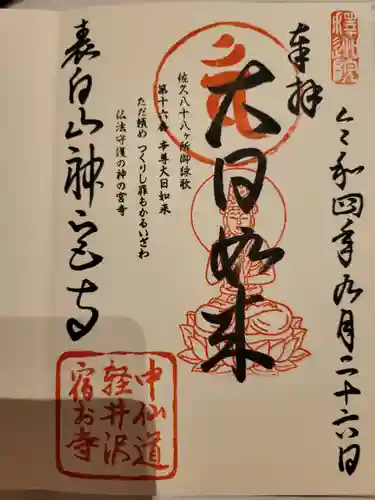 奉拝
令和四年九月二十六日
大日如来
佐久八十八ヶ所御詠歌
第十六番 本尊大日如来
ただ頼め つくりし罪もかるいざわ
仏法守護の神の宮寺
表白山神宮寺
中仙道
軽井沢
宿お寺